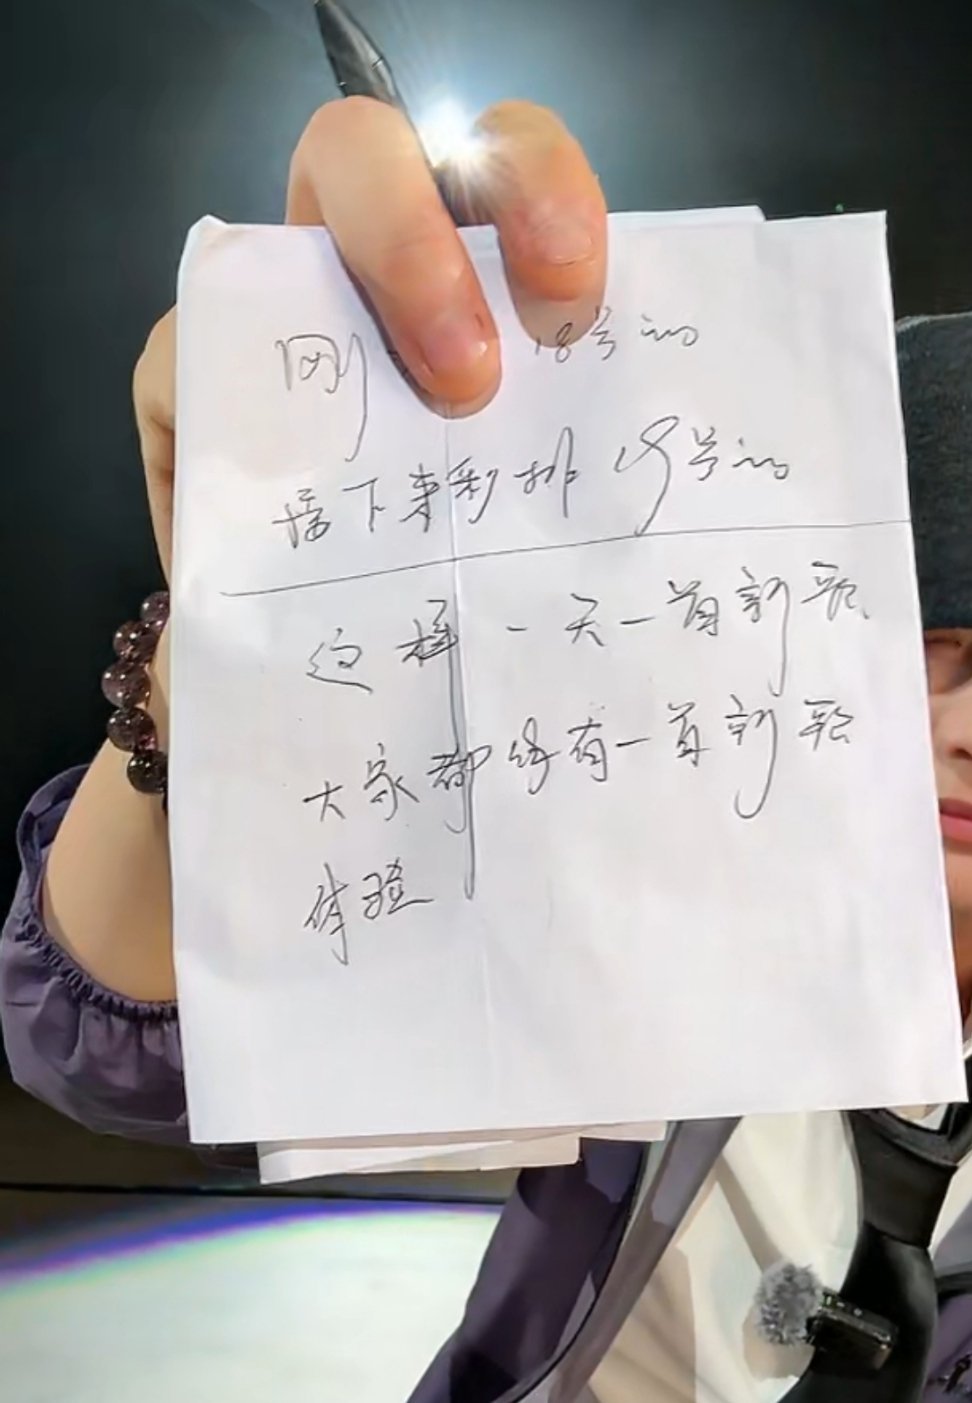 刚 18号的
接下来彩排19号的
这样一天一首新歌
大家都能有一首新歌
体验